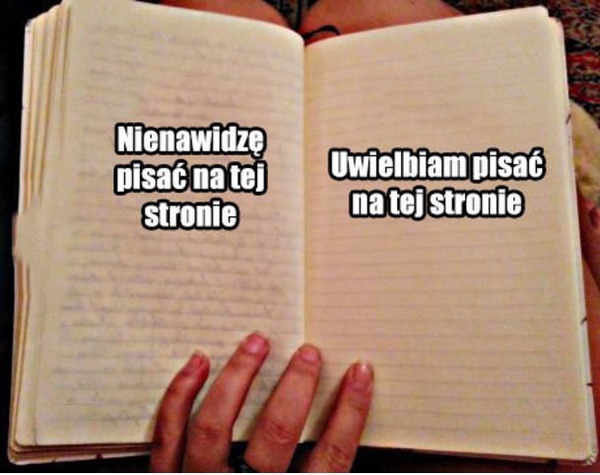 Nienawidzę
pisać na tej
stronie
Uwielbiam pisać
na tej stronie